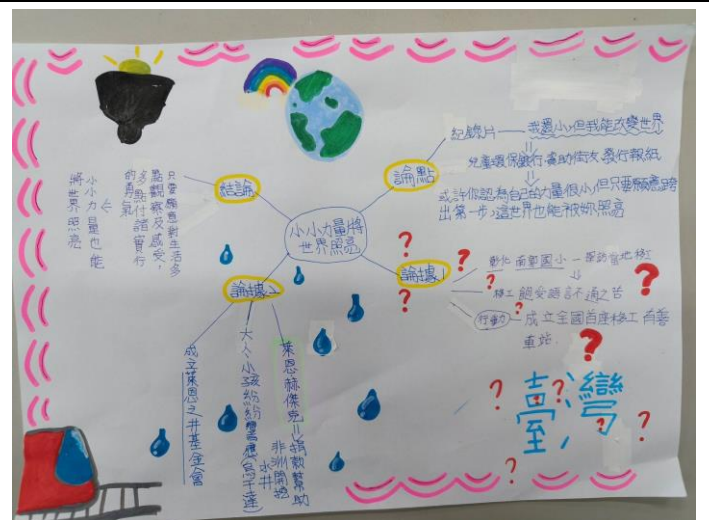 小小力量將
世界照亮
論點
紀錄片 — 我還小，但我能改變世界
兒童環保銀行、資助街友、發行報紙
或許你認為自己的力量很小，但只要願意踏
出第一步，這世界也能被妳照亮
論據1
彰化 南郭國小 — 探訪當地移工
移工 飽受語言不通之苦
行動 — 成立全國首座移工 友善
車站
臺灣
論據2
萊恩赫傑克 = 捐款幫助
非洲開挖
水井
大人小孩紛紛響應(烏干達)
成立萊恩之井基金會
結論
只要願意對生活多
點觀察及感受，
多點付諸實行
的勇氣
小小力量也能
將世界照亮